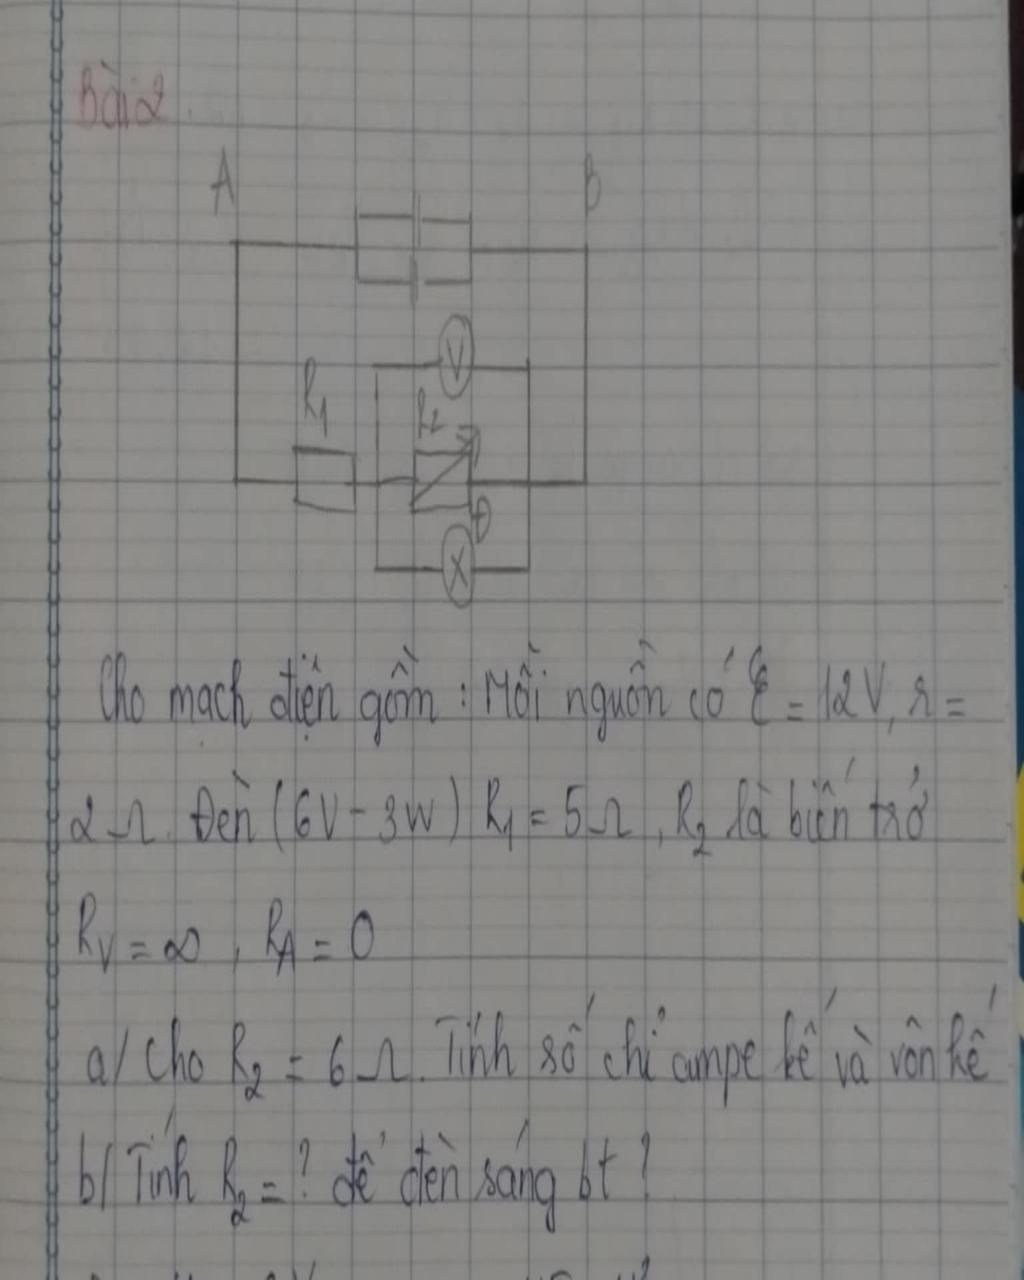 Bài 2
A
B
V
R1
R2
Đ
X
Cho mạch điện gồm : Mỗi nguồn có ℰ = 12V, r =
2Ω. Đèn (6V - 3W) R1 = 5Ω, R2 là biến trở
RV = ∞, RA = 0
a/ Cho R2 = 6Ω. Tính số chỉ ampe kế và vôn kế
b/ Tính R2 = ? để đèn sáng bt ?